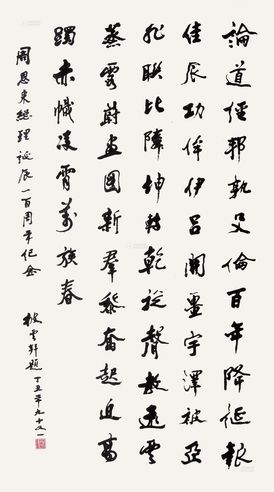 論道經邦孰与倫百年降誕報
佳辰功侔伊呂開疆宇澤被亞
非聯比隣坤轉乾旋聲教遠雲
蒸霞蔚畫圖新羣黎奮起追高
躅赤幟凌霄萬族春
周恩来總理誕辰一百周年纪念
雲軒題丁丑年九十又一